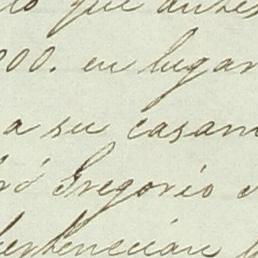 que antes
000. en lugar
a su casam
Gregorio
pertenecian